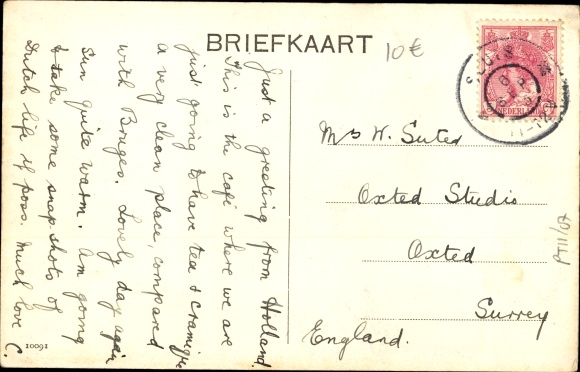 BRIEFKAART
10€
Just a greeting from Holland.
This is the café where we are
just going to have tea & cramique
a very clean place, compared
with Bruges. Lovely day again
Sun quite warm. Am going
to take some snap shots of
Dutch life if poss. Much love C.
10091
SLUIS
NEDERLAND
Mrs W. Suter
Oxted Studio
Oxted
Surrey
England.
PT11/07